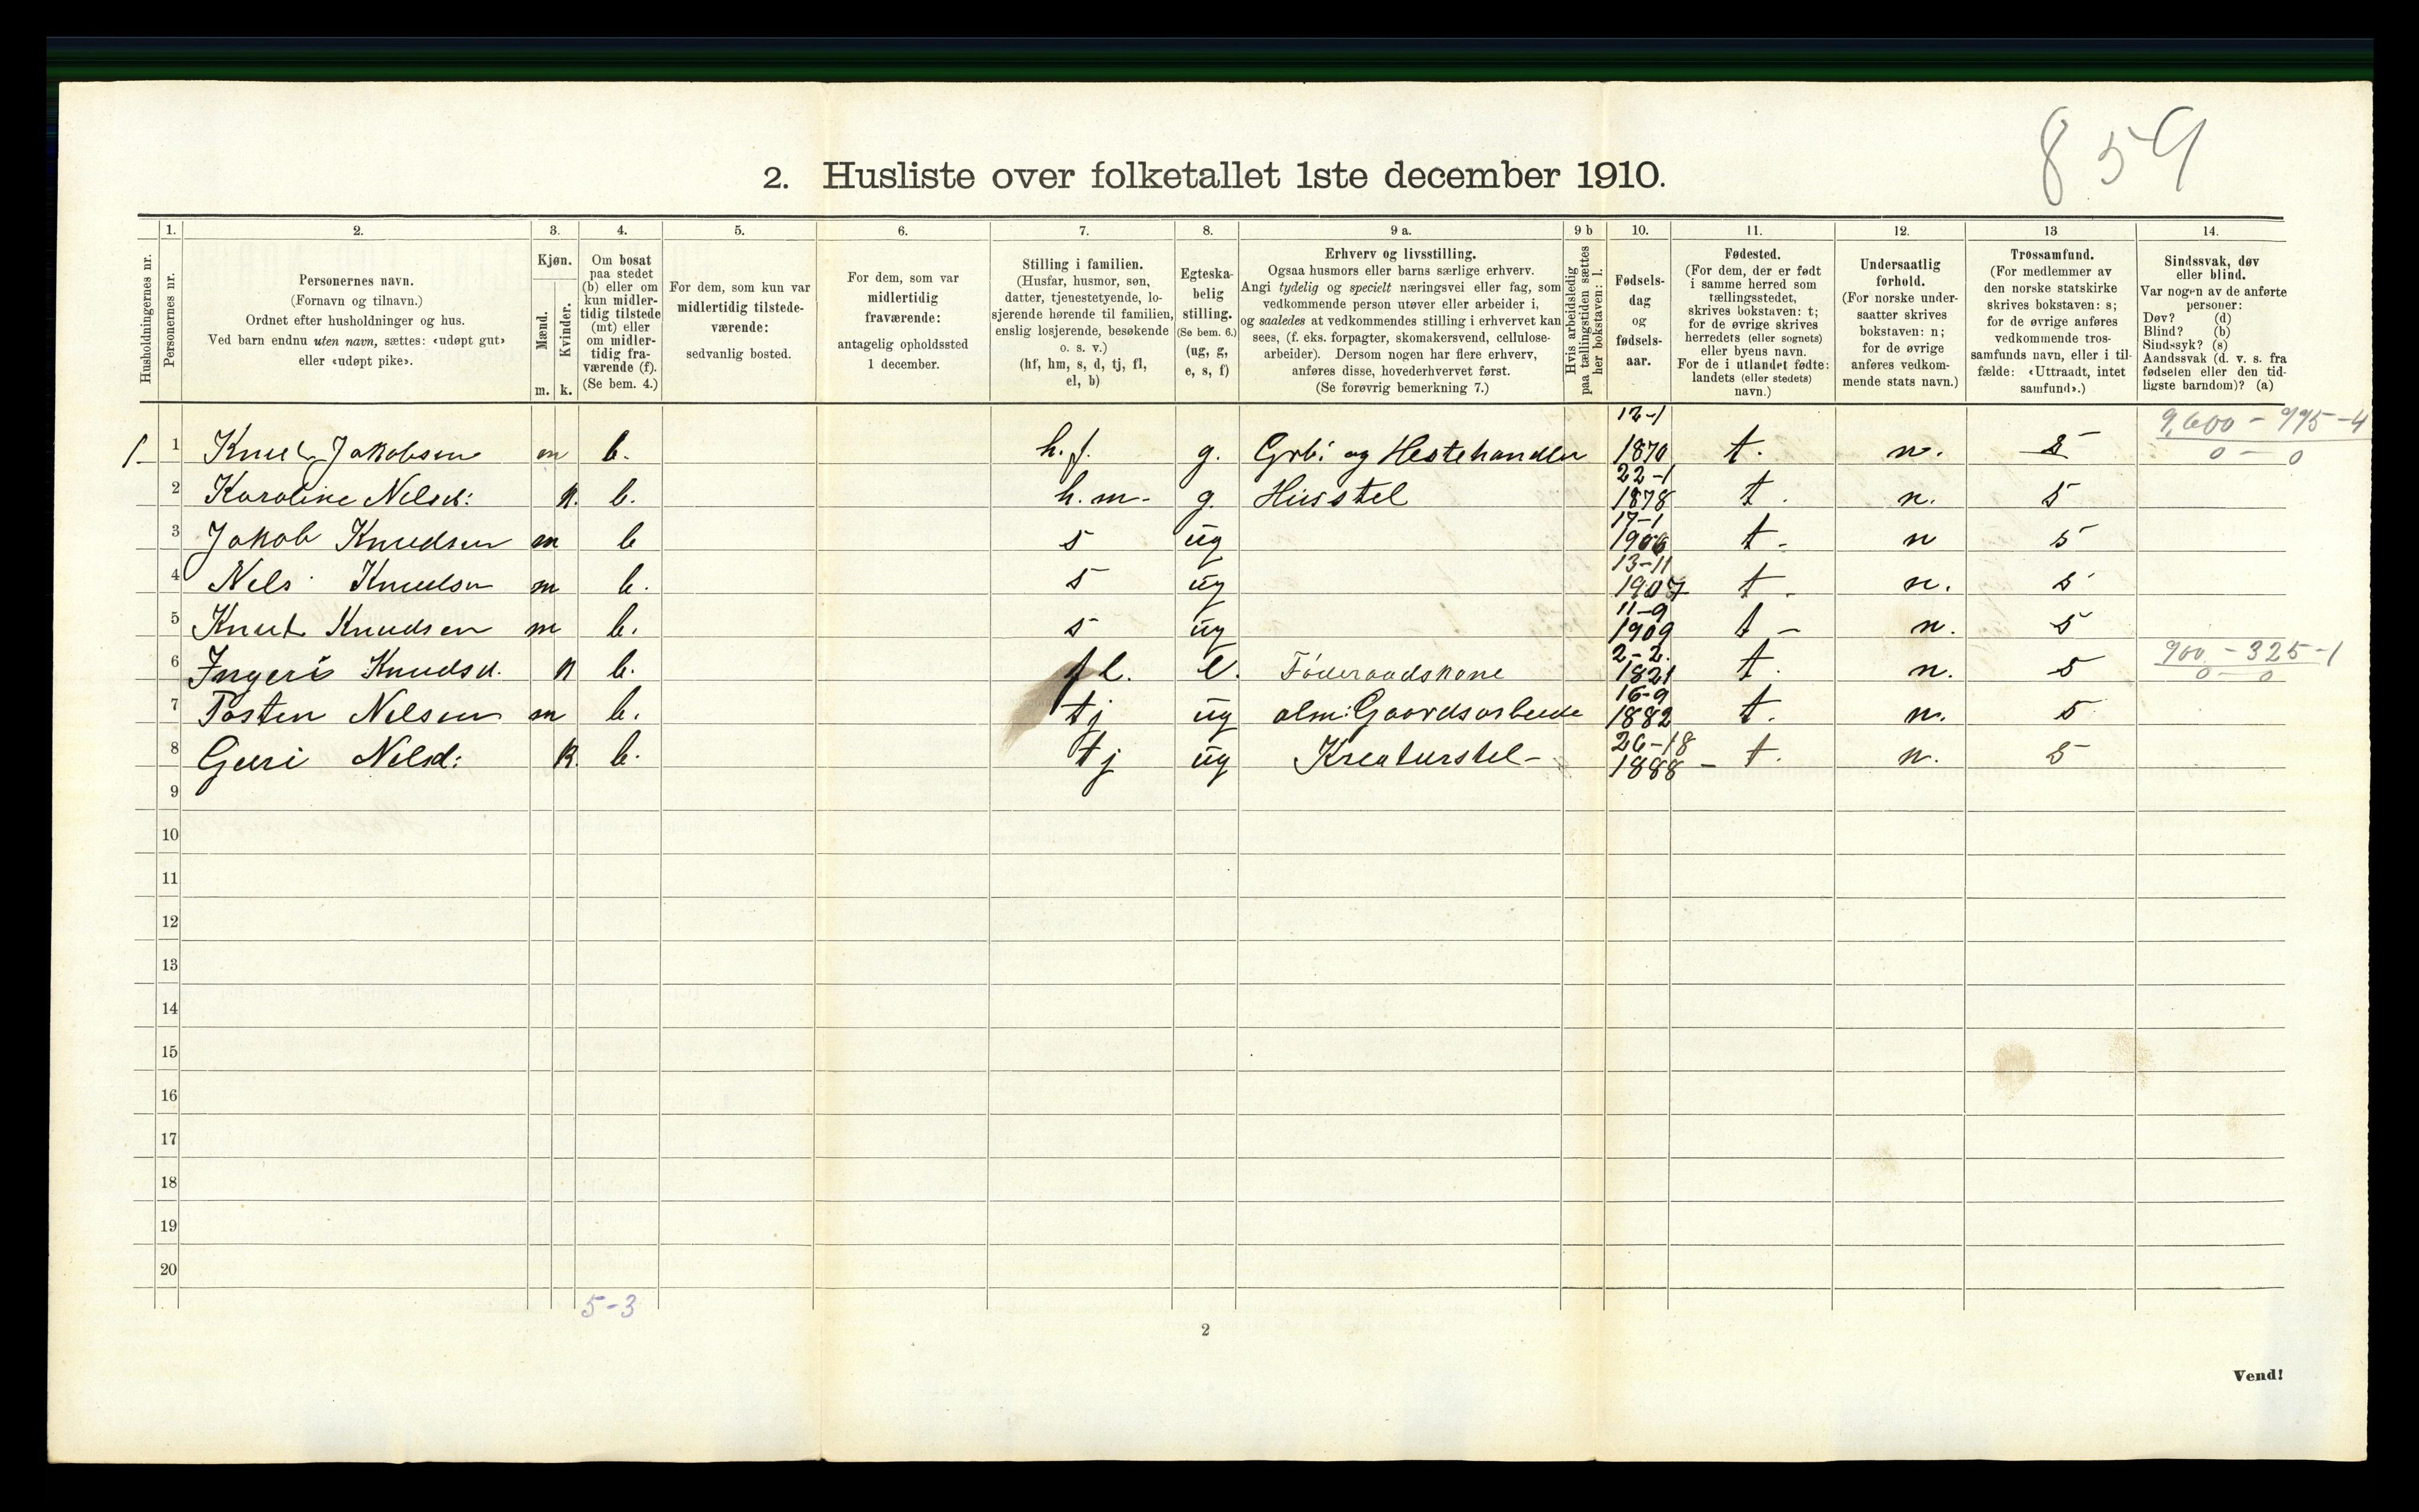 859
2. Husliste over folketallet 1ste december 1910.
Husholdningernes nr.
1. Personernes nr.
2. Personernes navn.
(Fornavn og tilnavn.)
Ordnet efter husholdninger og hus.
Ved barn endnu uten navn, sættes: «udøpt gut»
eller «udøpt pike».
3. Kjøn.
Mænd. m.
Kvinder. k.
4. Om bosat
paa stedet
(b) eller om
kun midler-
tidig tilstede
(mt) eller
om midler-
tidig fra-
værende (f).
(Se bem. 4.)
5. For dem, som kun var
midlertidig tilstede-
værende:
sedvanlig bosted.
6. For dem, som var
midlertidig
fraværende:
antagelig opholdssted
1 december.
7. Stilling i familien.
(Husfar, husmor, søn,
datter, tjenestetyende, lo-
sjerende hørende til familien,
enslig losjerende, besøkende
o. s. v.)
(hf, hm, s, d, tj, fl,
el, b)
8. Egteska-
belig
stilling.
(Se bem. 6.)
(ug, g,
e, s, f)
9 a. Erhverv og livsstilling.
Ogsaa husmors eller barns særlige erhverv.
Angi tydelig og specielt næringsvei eller fag, som
vedkommende person utøver eller arbeider i,
og saaledes at vedkommendes stilling i erhvervet kan
sees, (f. eks. forpagter, skomakersvend, cellulose-
arbeider). Dersom nogen har flere erhverv,
anføres disse, hovederhvervet først.
(Se forøvrig bemerkning 7.)
9 b Hvis arbeidsledig
paa tællingstiden sættes
her bokstaven: l.
10. Fødsels-
dag
og
fødsels-
aar.
11. Fødested.
(For dem, der er født
i samme herred som
tællingsstedet,
skrives bokstaven: t;
for de øvrige skrives
herredets (eller sognets)
eller byens navn.
For de i utlandet fødte:
landets (eller stedets)
navn.)
12. Undersaatlig
forhold.
(For norske under-
saatter skrives
bokstaven: n;
for de øvrige
anføres vedkom-
mende stats navn.)
13 Trossamfund.
(For medlemmer av
den norske statskirke
skrives bokstaven: s;
for de øvrige anføres
vedkommende tros-
samfunds navn, eller i til-
fælde: «Uttraadt, intet
samfund».)
14. Sindssvak, døv
eller blind.
Var nogen av de anførte
personer:
Døv? (d)
Blind? (b)
Sindssyk? (s)
Aandssvak (d. v. s. fra
fødselen eller den tid-
ligste barndom)? (a)
1. 1 Knut Jakobsen m b. h.f. g. Grbr og Hestehandler 12-1 1870 t. n. s 9,600 - 995-4 0 - 0
2 Karoline Nelsd: k. b. h.m- g. Husstel 22-1 1878 t. n. s
3 Jakob Knudsen m b s ug 17-1 1906 t- n s
4 Nels Knudsen m b. s ug 13-11 1907 t- n. s
5 Knut Knudsen m b. s ug 11-9 1909 t- n. s
6 Ingeri Knudsd. k b. fl. e. Føderaadskone 2-2. 1821 t. n. s 900 - 325-1 0 - 0
7 Tosten Nelsen m b. tj ug alm: Gaardsarbeide 16-9 1882 t. n. s
8 Guri Nelsd: k. b. tj ug Kreaturstel- 1888 - t. n. s
9
10
11
12
13
14
15
16
17
18
19
20
5-3
2
Vend!